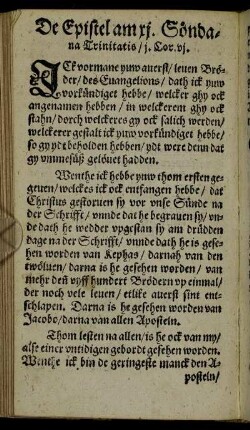 De Epistel am xj. Sönda-
na Trinitatis / j. Cor. vj.
JCk vormane yuw auerst / leuen Brö-
der / des Euangelions / dath ick yuw
vorkündiget hebbe / welcker ghy ock
angenamen hebben / in welckerem ghy ock
stahn / dorch welckeres gy ock salich werden /
welckerer gestalt ick yuw vorkündiget hebbe /
so gy ydt beholden hebben / ydt were denn dat
gy ummesüß gelöuet hadden.
Wenthe ick hebbe yuw thom ersten ge-
geuen / welckes ick ock entfangen hebbe / dat
Christus gestoruen sy vor vnse Sünde na
der Schrifft / vnnde dat he begrauen sy / vn-
de dath he wedder vpgestan sy am drüdden
dage na der Schrifft / vnnde dath he is gese-
hen worden van Kephas / darnah van den
twöluen / darna is he gesehen worden / van
mehr denn vyff hundert Brödern vp einmal /
der noch vele leuen / etlike auerst sint ent-
schlapen. Darna is he gesehen worden van
Jacobo / darna van allen Aposteln.
Thom lesten na allen / is he ock van my /
alse einer vntidigen gebordt gesehen worden.
Wenthe ick bin de geringeste manck den A-
posteln /